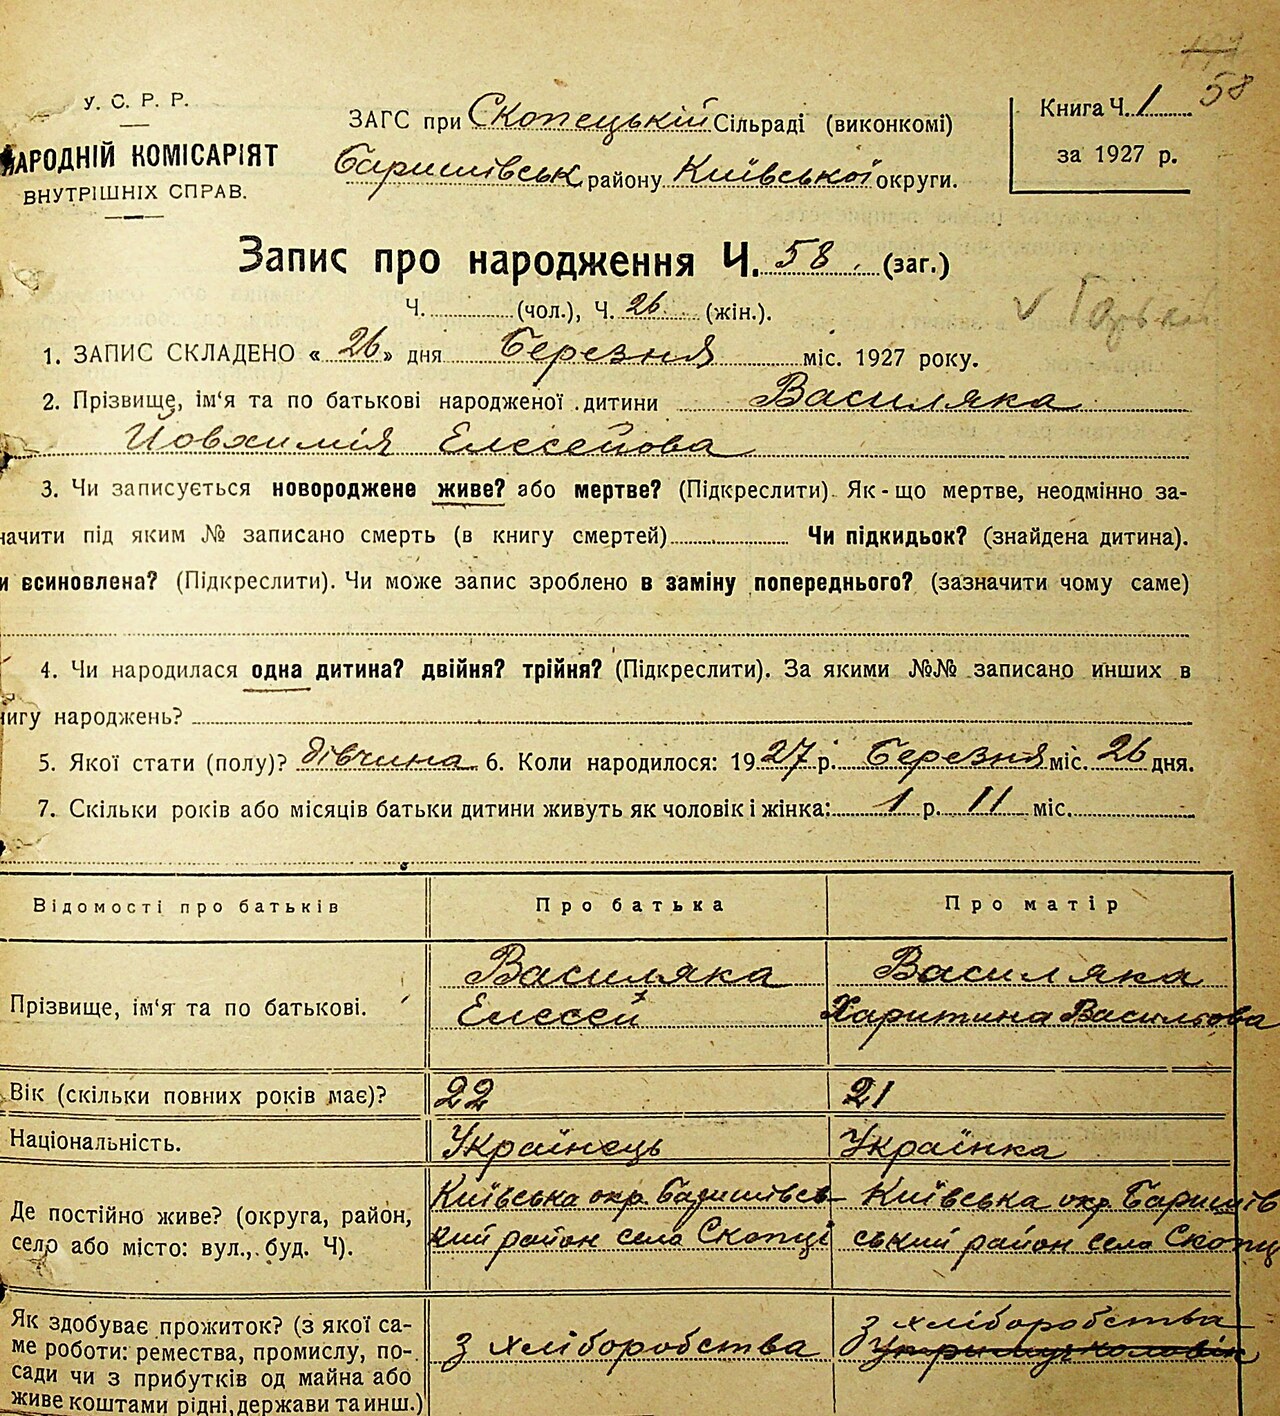 58
У. С. Р. Р.
НАРОДНІЙ КОМІСАРІЯТ
ВНУТРІШНІХ СПРАВ.
ЗАГС при Скопецькій Сільраді (виконкомі)
Баришівськ району Київської округи.
Книга Ч. 1
за 1927 р.
Запис про народження Ч. 58. (заг.)
Ч. (чол.), Ч. 26 (жін.).
1. ЗАПИС СКЛАДЕНО «26» дня Березня міс. 1927 року.
2. Прізвище, ім'я та по батькові народженої дитини Василяка
Йовхимія Елєсейова
3. Чи записується новороджене живе? або мертве? (Підкреслити). Як-що мертве, неодмінно за-
начити під яким № записано смерть (в книгу смертей) Чи підкидьок? (знайдена дитина).
и всиновлена? (Підкреслити). Чи може запис зроблено в заміну попереднього? (зазначити чому саме)
4. Чи народилася одна дитина? двійня? трійня? (Підкреслити). За якими №№ записано инших в
нигу народжень?
5. Якої стати (полу)? дівчина 6. Коли народилося: 1927 р. Березня міс. 26 дня.
7. Скільки років або місяців батьки дитини живуть як чоловік і жінка: 1 р. 11 міс.
Відомості про батьків Про батька Про матір
Прізвище, ім'я та по батькові.
Василяка
Елєсей
Василяка
Харитина Васильова
Вік (скільки повних років має)? 22 21
Національність. Українець Українка
Де постійно живе? (округа, район,
село або місто: вул., буд. Ч).
Київська окр. Баришівсь-
кий район села Скопці
Київська окр. Баришів
ський район села Скопц
Як здобуває прожиток? (з якої са-
ме роботи: ремества, промислу, по-
сади чи з прибутків од майна або
живе коштами рідні, держави та инш.)
з хліборобства
з хліборобства